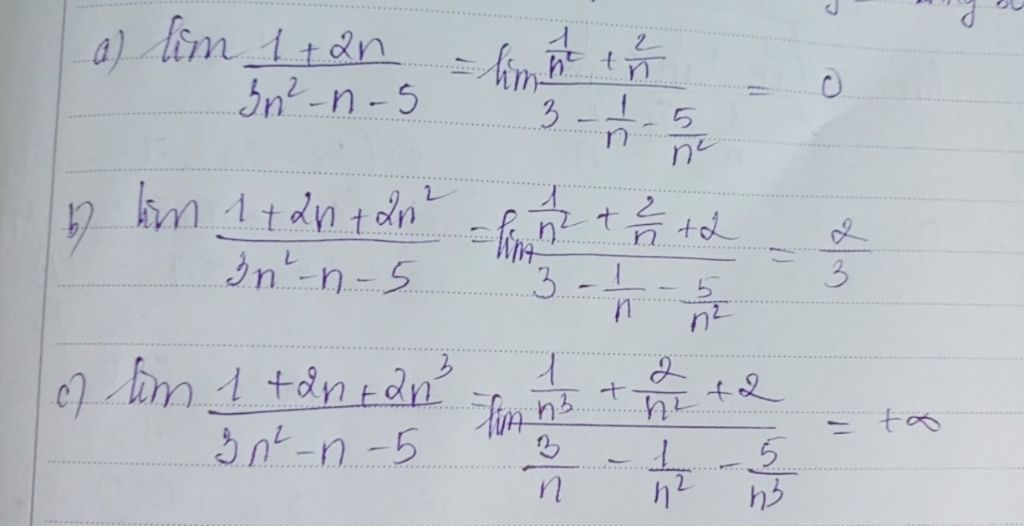 a) lim (1 + 2n)/(3n² - n - 5) = lim (1/n² + 2/n)/(3 - 1/n - 5/n²) = 0
b) lim (1 + 2n + 2n²)/(3n² - n - 5) = lim (1/n² + 2/n + 2)/(3 - 1/n - 5/n²) = 2/3
c) lim (1 + 2n + 2n³)/(3n² - n - 5) = lim (1/n³ + 2/n² + 2)/(3/n - 1/n² - 5/n³) = +∞